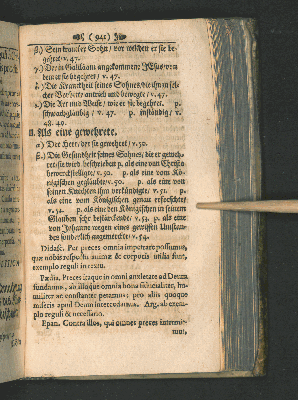 ( 941 )
β.) Sein krancker Sohn / vor welchen er sie be-
gehret v. 47.
γ.) Der in Galiläam angekommene JEsus / von
dem er sie begehret / v. 47.
δ.) Die Kranckheit seines Sohnes / die ihn zu sol-
cher antrieb und bewogte / v. 47.
ε.) Die Art und Weise / wie er sie begehret. p.
schwachgläubig / v. 47. p. inständig / v.
48. 49.
II. Als eine gewehrete.
α) Der HErr / der sie gewehret / v. 50.
β.) Die Gesundheit seines Sohnes / die er geweh-
ret sie wird beschrieben p. als eine von Christo
bewerckstelligte / v. 50. p. als eine vom Kö-
nigischen geglaubte / v. 50. p. als eine von
seinen Knechten ihm verkündigte v. 51. p.
als eine vom Königischen genau erforschete /
v. 52. p. als eine den Königischen in seinem
Glauben sehr bestärckende / v. 53. p. als eine
von Johanne wegen eines gewissen Umstan-
des sonderlich angemerckte / v. 54.
Didasc. Per preces omnia impetrare possumus,
quæ nobis respectu animæ & corporis utilia sunt,
exemplo reguli in textu.
Pædia. Preces itaque in omni anxietate ad Deum
fundamus, ab illoque omnia bona fiducialiter, hu-
militer ac constanter petamus; pro aliis quoque
miseris apud Deum intercedamus. Arg. ab exem-
plo reguli & necessario.
Epan. Contra illos, qui omnes preces intermit-
tunt,